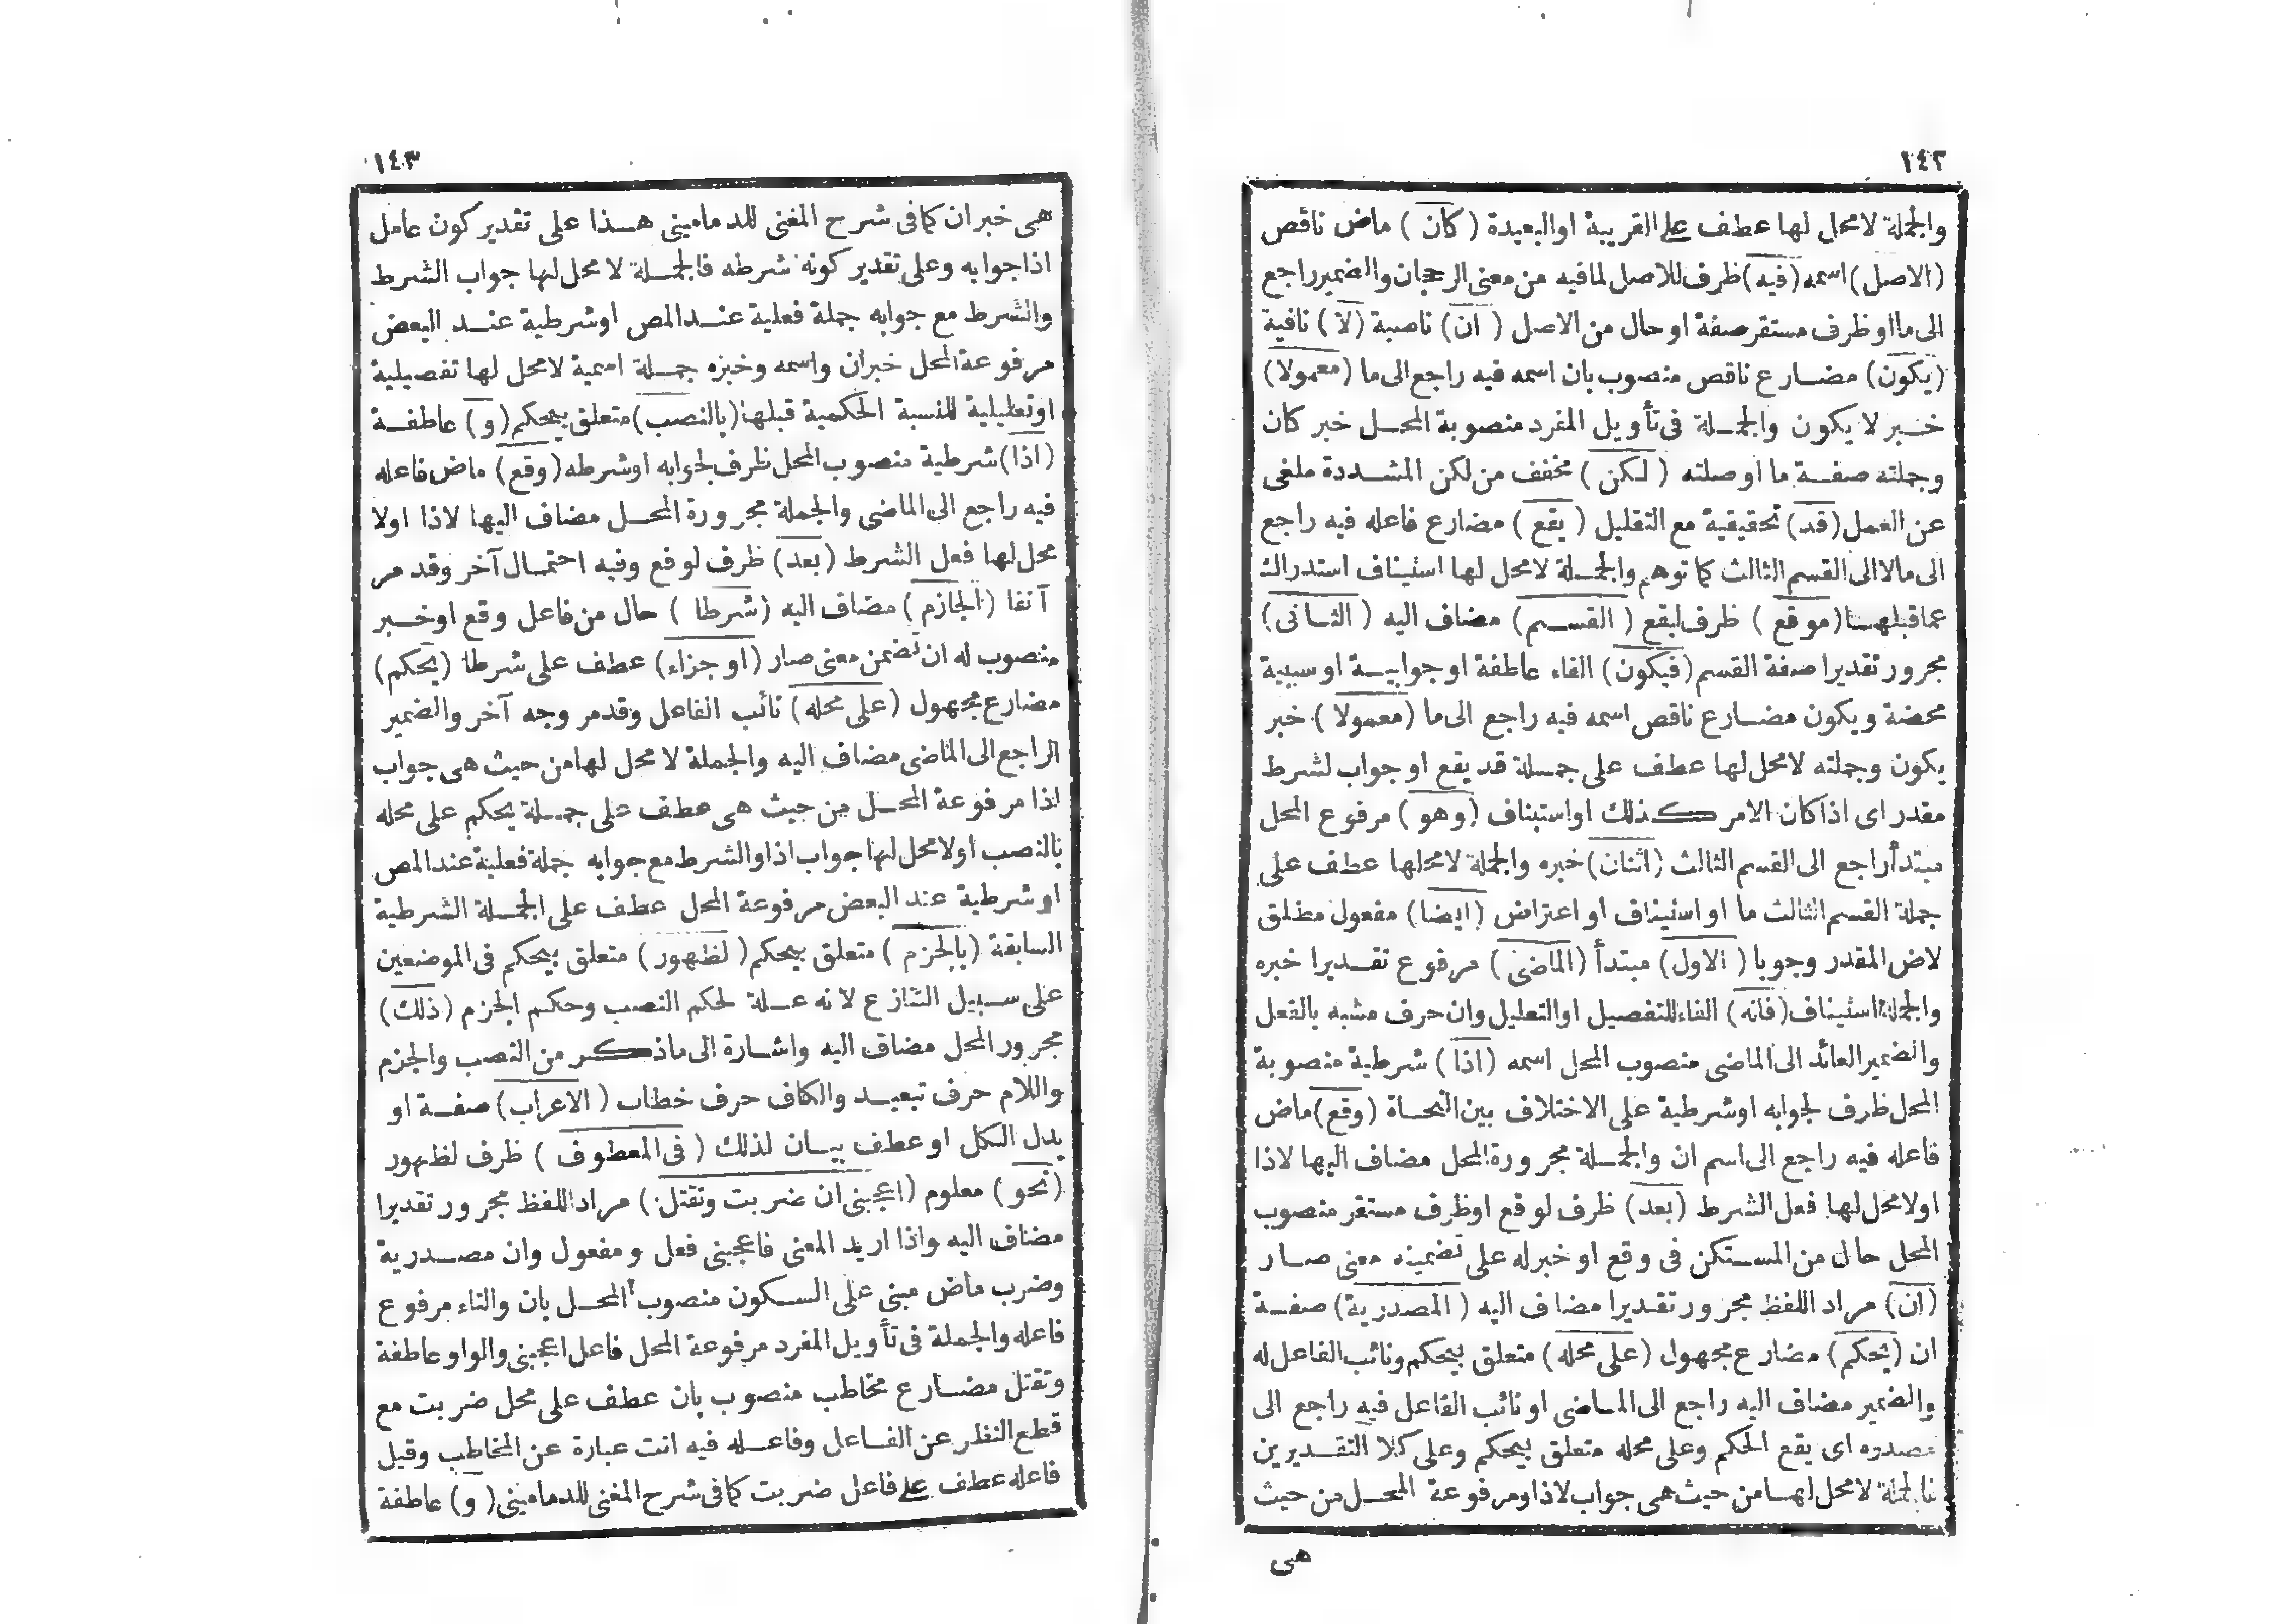 ١٤٢
والجملة لا محل لها عطف على القريبة او البعيدة ( كان ) ماض ناقص
(الاصل) اسمه (فيه) ظرف للاصل لما فيه من معنى الرجحان والضمير راجع
الى ما او ظرف مستقر صفة او حال من الاصل ( ان ) ناصبة ( لا ) نافية
(يكون) مضارع ناقص منصوب بان اسمه فيه راجع الى ما (معمولا)
خبر لا يكون والجملة فى تأويل المفرد منصوبة المحل خبر كان
وجملته صفة ما او صلته ( لكن ) مخفف من لكن المشددة ملغى
عن العمل (قد) تحقيقية مع التقليل ( يقع ) مضارع فاعله فيه راجع
الى ما لا الى القسم الثالث كما توهم والجملة لا محل لها استيناف استدراك
عما قبلها (موقع ) ظرف ليقع ( القسم) مضاف اليه ( الثانى)
مجرور تقديرا صفة القسم (فيكون) الفاء عاطفة او جوابية او سببية
محضة ويكون مضارع ناقص اسمه فيه راجع الى ما (معمولا ) خبر
يكون وجملته لا محل لها عطف على جملة قد يقع او جواب لشرط
مقدر اى اذا كان الامر كذلك او استيناف (وهو ) مرفوع المحل
مبتدأ راجع الى القسم الثالث (اثنان) خبره والجملة لا محل لها عطف على
جملة القسم الثالث ما او استيناف او اعتراض (ايضا) مفعول مطلق
لاض المقدر وجوبا ( الاول) مبتدأ (الماضى ) مرفوع تقديرا خبره
والجملة استيناف (فانه) الفاء للتفصيل او التعليل وان حرف مشبه بالفعل
والضمير العائد الى الماضى منصوب المحل اسمه (اذا ) شرطية منصوبة
المحل ظرف لجوابه او شرطية على الاختلاف بين النحاة (وقع) ماض
فاعله فيه راجع الى اسم ان والجملة مجرورة المحل مضاف اليها لاذا
اولا محل لها فعل الشرط (بعد) ظرف لوقع او ظرف مستقر منصوب
المحل حال من المستكن فى وقع او خبر له على تضمينه معنى صار
(ان) مراد اللفظ مجرور تقديرا مضاف اليه ( المصدرية) صفة
ان (يحكم) مضارع مجهول (على محله) متعلق بيحكم ونائب الفاعل له
والضمير مضاف اليه راجع الى الماضى او نائب الفاعل فيه راجع الى
مصدره اى يقع الحكم وعلى محله متعلق بيحكم وعلى كلا التقديرين
فالجملة لا محل لها من حيث هى جواب لاذا ومرفوعة المحل من حيث
هى
١٤٣
هى خبر ان كما فى شرح المغنى للدمامينى هذا على تقدير كون عامل
اذا جوابه وعلى تقدير كونه شرطه فالجملة لا محل لها جواب الشرط
والشرط مع جوابه جملة فعلية عند المص او شرطية عند البعض
مرفوعة المحل خبر ان واسمه وخبره جملة اسمية لا محل لها تفصيلية
او تعليلية للنسبة الحكمية قبلها (بالنصب) متعلق بيحكم (و) عاطفة
(اذا) شرطية منصوب المحل ظرف لجوابه او شرطه (وقع) ماض فاعله
فيه راجع الى الماضى والجملة مجرورة المحل مضاف اليها لاذا اولا
محل لها فعل الشرط (بعد) ظرف لوقع وفيه احتمال آخر وقد مر
آنفا (الجازم ) مضاف اليه (شرطا ) حال من فاعل وقع او خبر
منصوب له ان تضمن معنى صار (او جزاء) عطف على شرطا (يحكم)
مضارع مجهول (على محله) نائب الفاعل وقد مر وجه آخر والضمير
الراجع الى الماضى مضاف اليه والجملة لا محل لها من حيث هى جواب
اذا مرفوعة المحل من حيث هى عطف على جملة يحكم على محله
بالنصب اولا محل لها جواب اذا والشرط مع جوابه جملة فعلية عند المص
او شرطية عند البعض مرفوعة المحل عطف على الجملة الشرطية
السابقة (بالجزم ) متعلق بيحكم ( لظهور ) متعلق بيحكم فى الموضعين
على سبيل التنازع لانه علة لحكم النصب وحكم الجزم (ذلك)
مجرور المحل مضاف اليه واشارة الى ما ذكر من النصب والجزم
واللام حرف تبعيد والكاف حرف خطاب ( الاعراب) صفة او
بدل الكل او عطف بيان لذلك ( فى المعطوف ) ظرف لظهور
(نحو ) معلوم (اعجبنى ان ضربت وتقتل ) مراد اللفظ مجرور تقديرا
مضاف اليه واذا اريد المعنى فاعجبنى فعل ومفعول وان مصدرية
وضرب ماض مبنى على السكون منصوب المحل بان والتاء مرفوع
فاعله والجملة فى تأويل المفرد مرفوعة المحل فاعل اعجبنى والواو عاطفة
وتقتل مضارع مخاطب منصوب بان عطف على محل ضربت مع
قطع النظر عن الفاعل وفاعله فيه انت عبارة عن المخاطب وقيل
فاعله عطف على فاعل ضربت كما فى شرح المغنى للدمامينى ( و) عاطفة